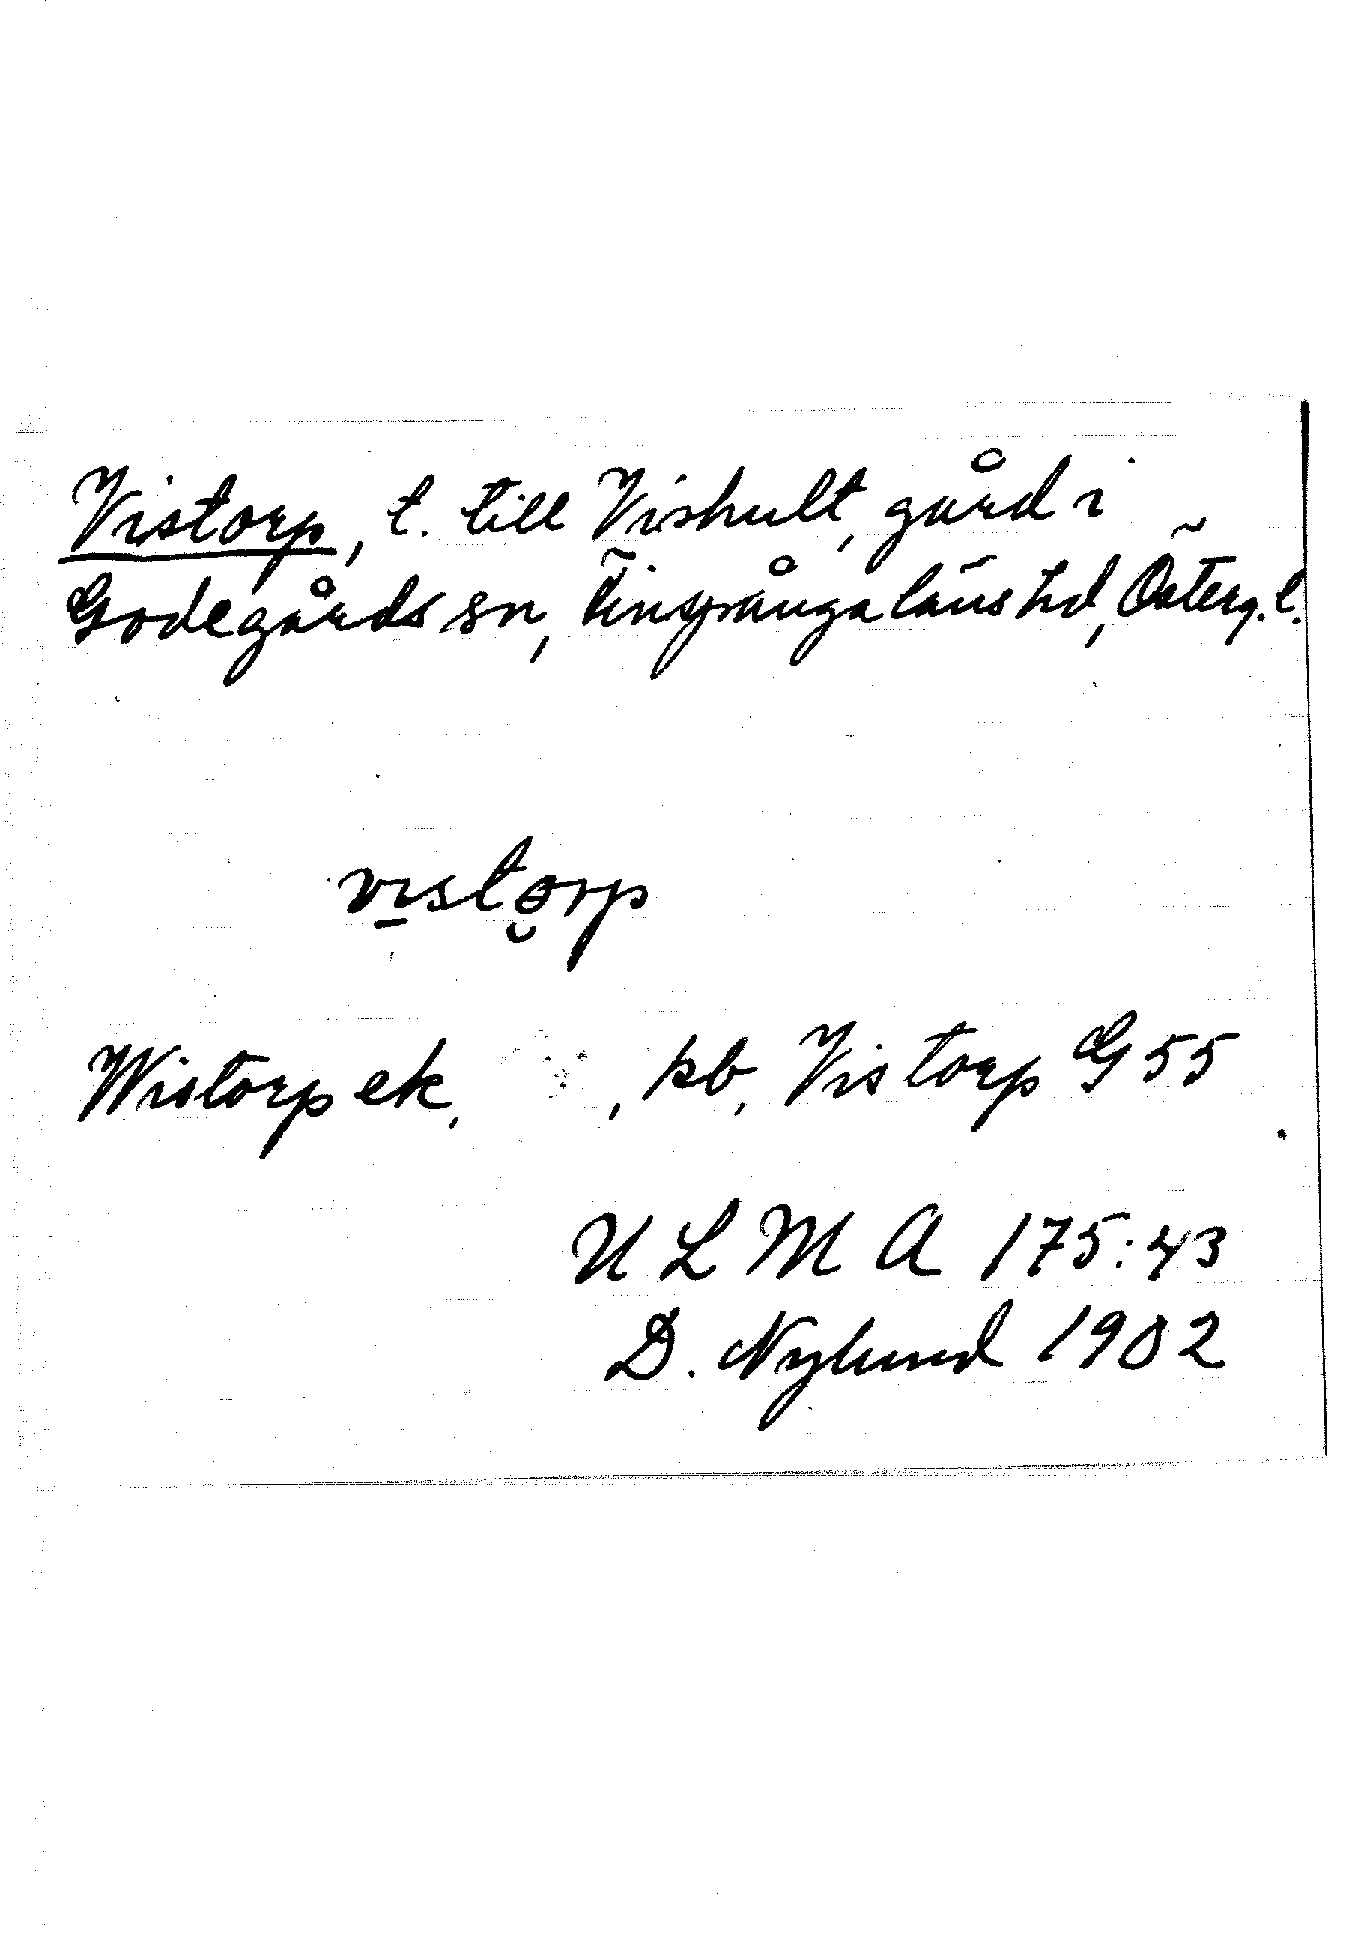 Vistorp, t. till Vishult, gård i
Godegårds sn, Finspånga läns hd, Österg. l.
vistorp
Wistorp ek, , kb, Vistorp G 55
U L M A 175:43
D. Nylund 1902